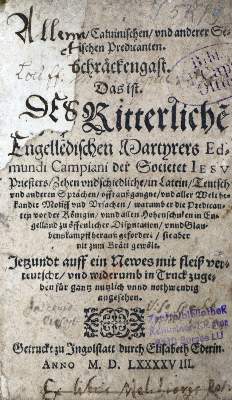 Allen/ Caluinischen/ vnd anderer Se-
ctischen Predicanten.
Schräckengast.
Das ist.
DES Ritterlichẽ
Engellẽdischen Martyrers Ed-
mundi Campiani der Societet IESV
Priesters/ Zehen vndschiedliche/ in Latein/ Teutsch
vnd anderen Sprachen/ offt außgangne/ vnd aller Welt be-
kandte Motiff vnd Vrsachen/ warumb er die Predicant-
ten vor der Königin/ vnnd allen Hohenschulen in En-
gelland zu öffentlicher Disputation/ vnnd Glau-
benskampff herauß gefordert/ sie aber
nit zum Brätt gewölt.
Jetzundt auff ein Newes mit fleiß ver-
teutscht/ vnd widerumb in Truck zuge-
den für gantz nutzlich vnnd nothwendig
angesehen.
Getruckt zu Ingolstatt durch Elisabeth Ederin.
ANNO M. D. LXXXXVIII.
Ex libris